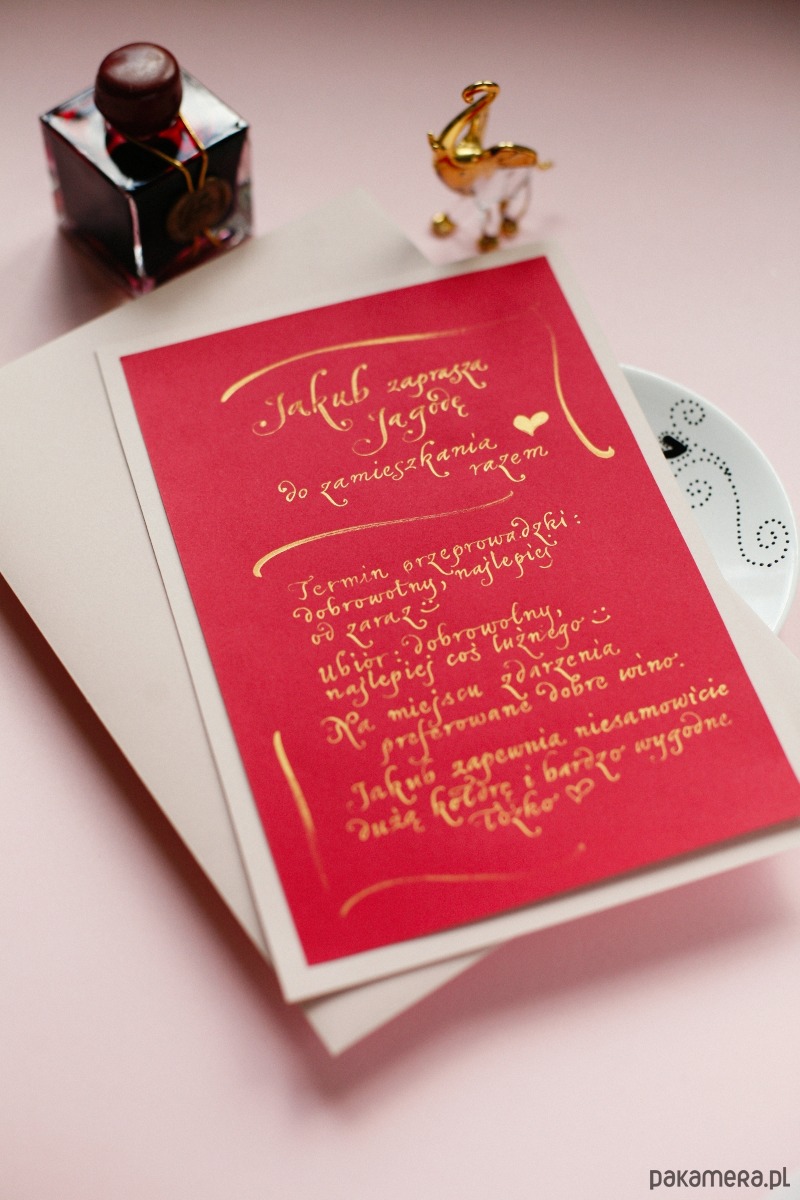 Jakub zaprasza
Jagodę
do zamieszkania
razem
Termin przeprowadzki:
dobrowolny, najlepiej
od zaraz :)
ubiór: dobrowolny,
najlepiej coś luźnego :)
Na miejscu zdarzenia
preferowane dobre wino.
Jakub zapewnia niesamowicie
dużą kołdrę i bardzo wygodne
łóżko ♡
pakamera.pl